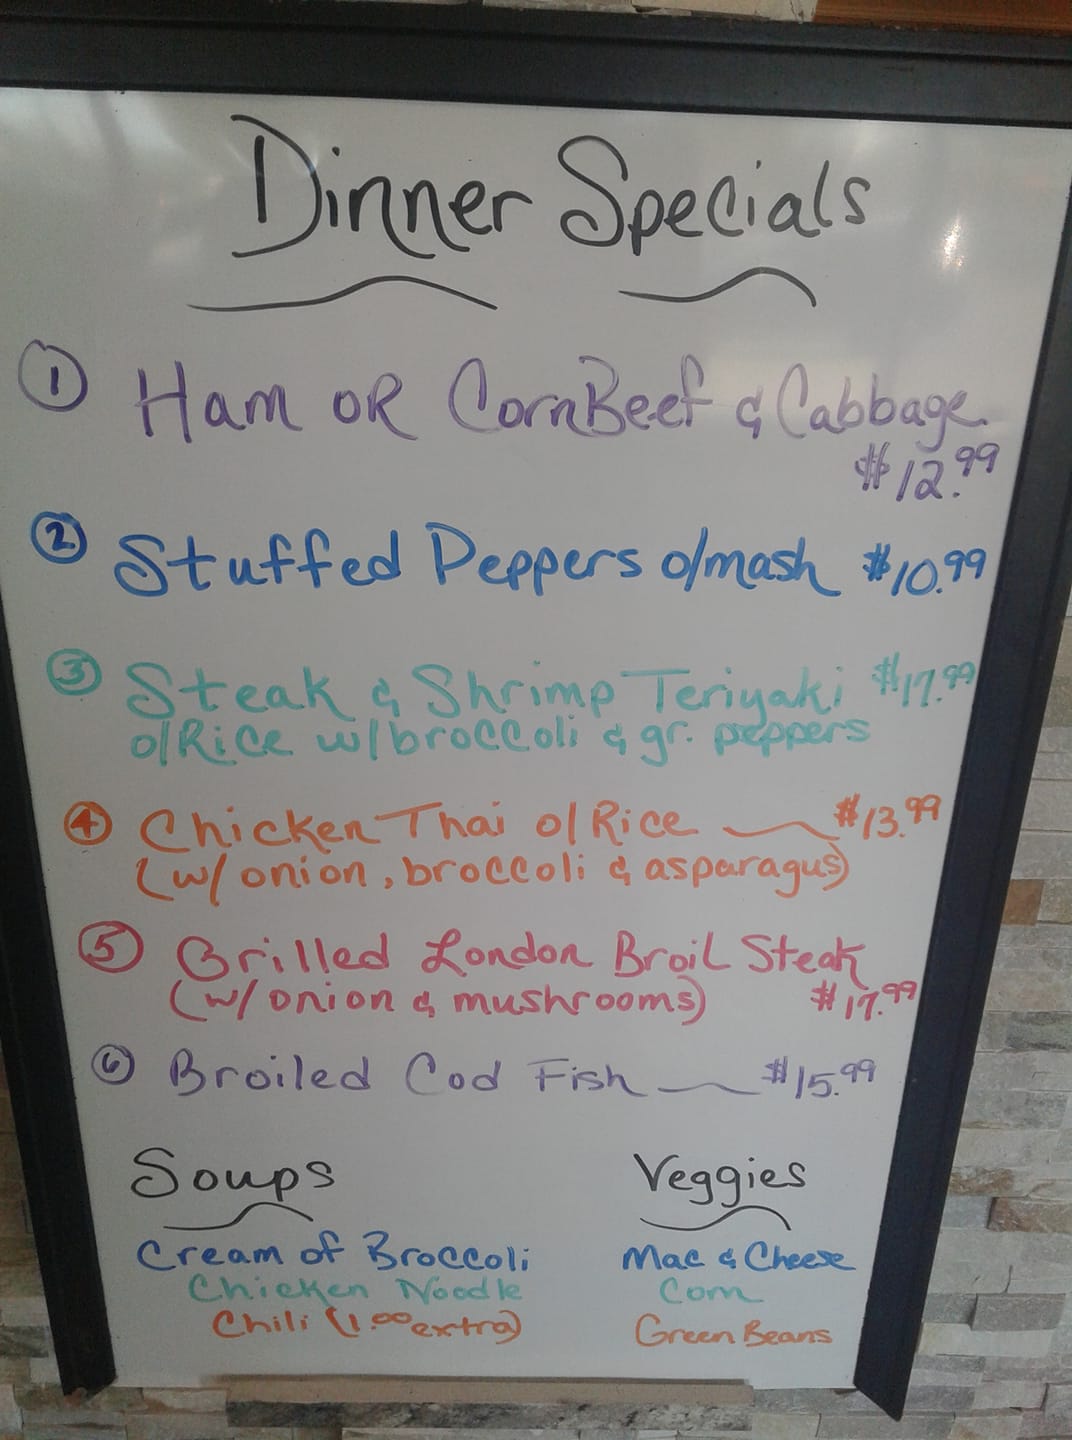 Dinner Specials
① Ham OR CornBeef & Cabbage
$12.99
② Stuffed Peppers o/mash $10.99
③ Steak & Shrimp Teriyaki $17.99
o/Rice w/broccoli & gr. peppers
④ Chicken Thai o/Rice $13.99
(w/ onion, broccoli & asparagus)
⑤ Grilled London Broil Steak
(w/ onion & mushrooms) $17.99
⑥ Broiled Cod Fish $15.99
Soups
Cream of Broccoli
Chicken Noodle
Chili (1.00 extra)
Veggies
Mac & Cheese
Corn
Green Beans